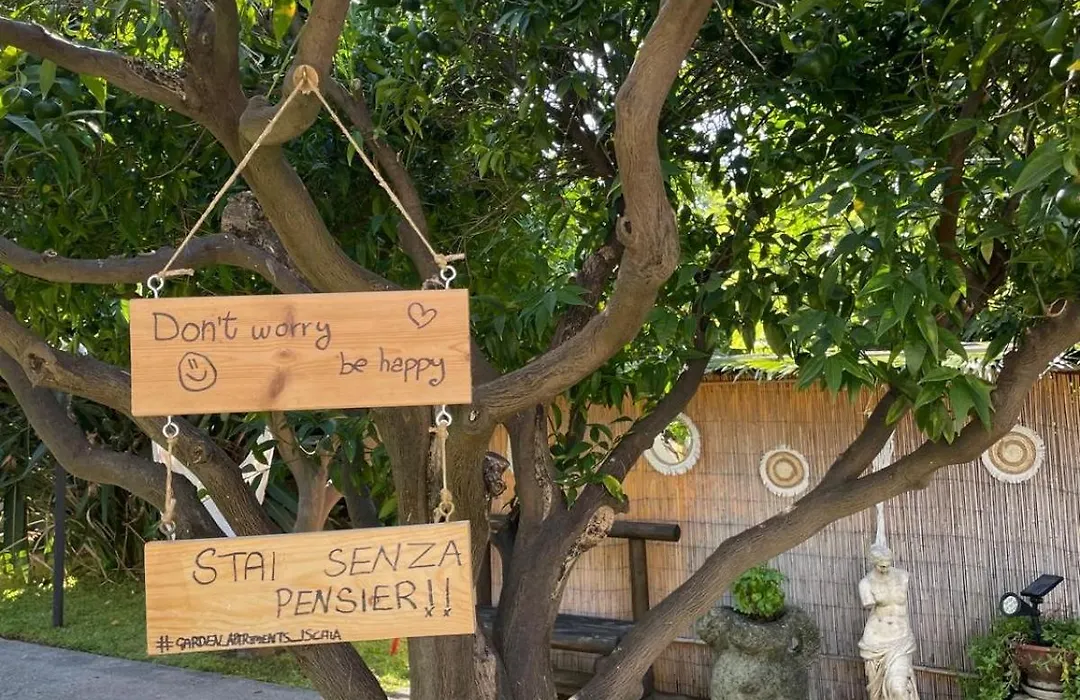 Don't worry
be happy
STAI SENZA
PENSIERI!!
#GARDEN_APARTMENTS_ISCHIA